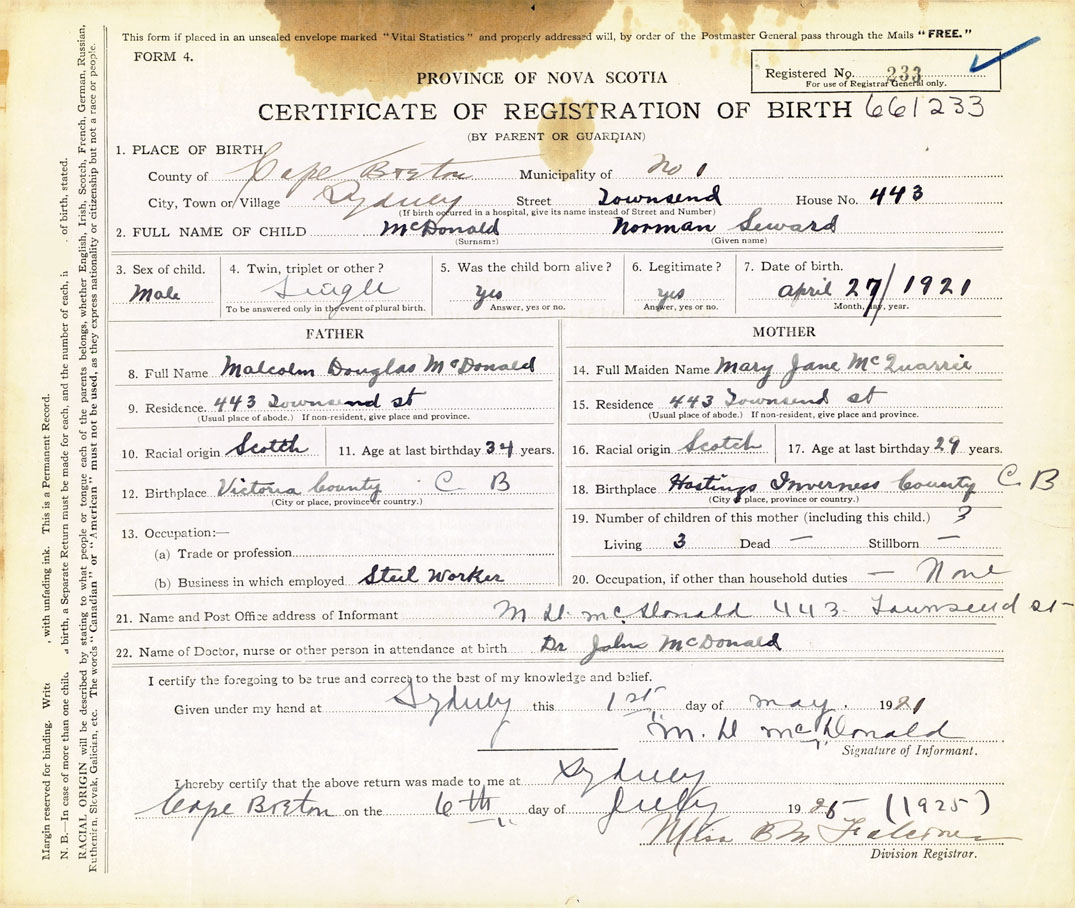 This form if placed in an unsealed envelope marked "Vital Statistics" and properly addressed will, by order of the Postmaster General pass through the Mails "FREE."
FORM 4.
Registered No. 233
For use of Registrar General only.
PROVINCE OF NOVA SCOTIA
CERTIFICATE OF REGISTRATION OF BIRTH 661233
(BY PARENT OR GUARDIAN)
1. PLACE OF BIRTH,
County of Cape Breton Municipality of No 1
City, Town or Village Sydney Street Townsend House No. 443
(If birth occurred in a hospital, give its name instead of Street and Number)
2. FULL NAME OF CHILD McDonald Norman Seward
(Surname) (Given name)
3. Sex of child. 4. Twin, triplet or other? 5. Was the child born alive? 6. Legitimate? 7. Date of birth.
Male Single yes yes april 27/1921
To be answered only in the event of plural birth. Answer, yes or no. Answer, yes or no. Month, day, year.
FATHER MOTHER
8. Full Name Malcolm Douglas McDonald
9. Residence. 443 Townsend st
(Usual place of abode.) If non-resident, give place and province.
10. Racial origin Scotch 11. Age at last birthday 34 years.
12. Birthplace Victoria County C B
(City or place, province or country.)
13. Occupation:—
(a) Trade or profession
(b) Business in which employed Steel Worker
14. Full Maiden Name Mary Jane McQuarrie
15. Residence 443 Townsend st
(Usual place of abode.) If non-resident, give place and province.
16. Racial origin Scotch 17. Age at last birthday 29 years.
18. Birthplace Hastings Inverness County C B
(City or place, province or country.)
19. Number of children of this mother (including this child.) 3
Living 3 Dead — Stillborn —
20. Occupation, if other than household duties — None
21. Name and Post Office address of Informant M D McDonald 443 Townsend st
22. Name of Doctor, nurse or other person in attendance at birth Dr John McDonald
I certify the foregoing to be true and correct to the best of my knowledge and belief.
Given under my hand at Sydney this 1st day of may. 1921
M. D McDonald
Signature of Informant.
I hereby certify that the above return was made to me at Sydney
Cape Breton on the 6th day of July 1925 (1925)
Miss B M Falconer
Division Registrar.
Margin reserved for binding. Write , with unfading ink. This is a Permanent Record.
N. B.—In case of more than one birth, a Separate Return must be made for each, and the number of each, of birth, stated.
RACIAL ORIGIN will be described by stating to what people or tongue each of the parents belongs, whether English, Irish, Scotch, French, German, Russian,
Ruthenian, Slovak, Galician, etc. The words "Canadian" or "American" must not be used, as they express nationality or citizenship but not a race or people.